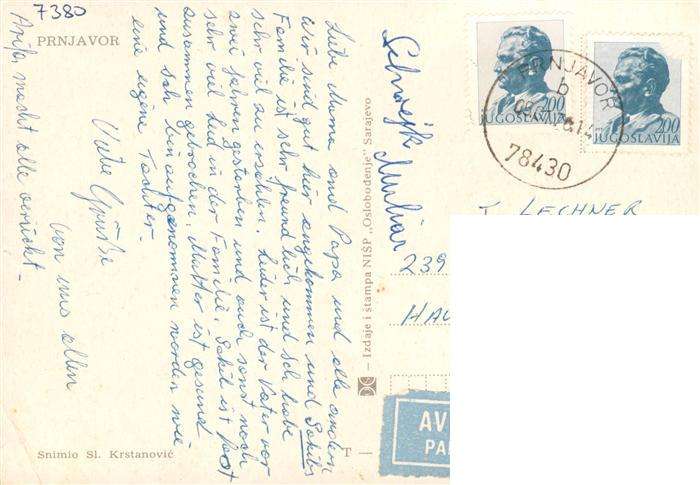 7380
PRNJAVOR
Liebe Mama und Papa und alle andern
Wir sind gut hier angekommen und Sakibs
Familie ist sehr freundlich und ich habe
sehr viel zu erzählen. Leider ist der Vater vor
zwei Jahren gestorben und auch sonst noch
sehr viel Leid in der Familie. Sakib ist fast
zusammen gebrochen. Mutter ist gesund
und ich bin aufgenommen worden wie
eine eigene Tochter.
Viele Grüsse
von uns allen
macht alle verrückt -
Snimio Sl. Krstanović
— Izdaje i štampa NIŠP „Oslobođenje“, Sarajevo
T —
200
JUGOSLAVIJA
200
JUGOSLAVIJA
PRNJAVOR
b
78430
LECHNER
239
HAU
AV
PA